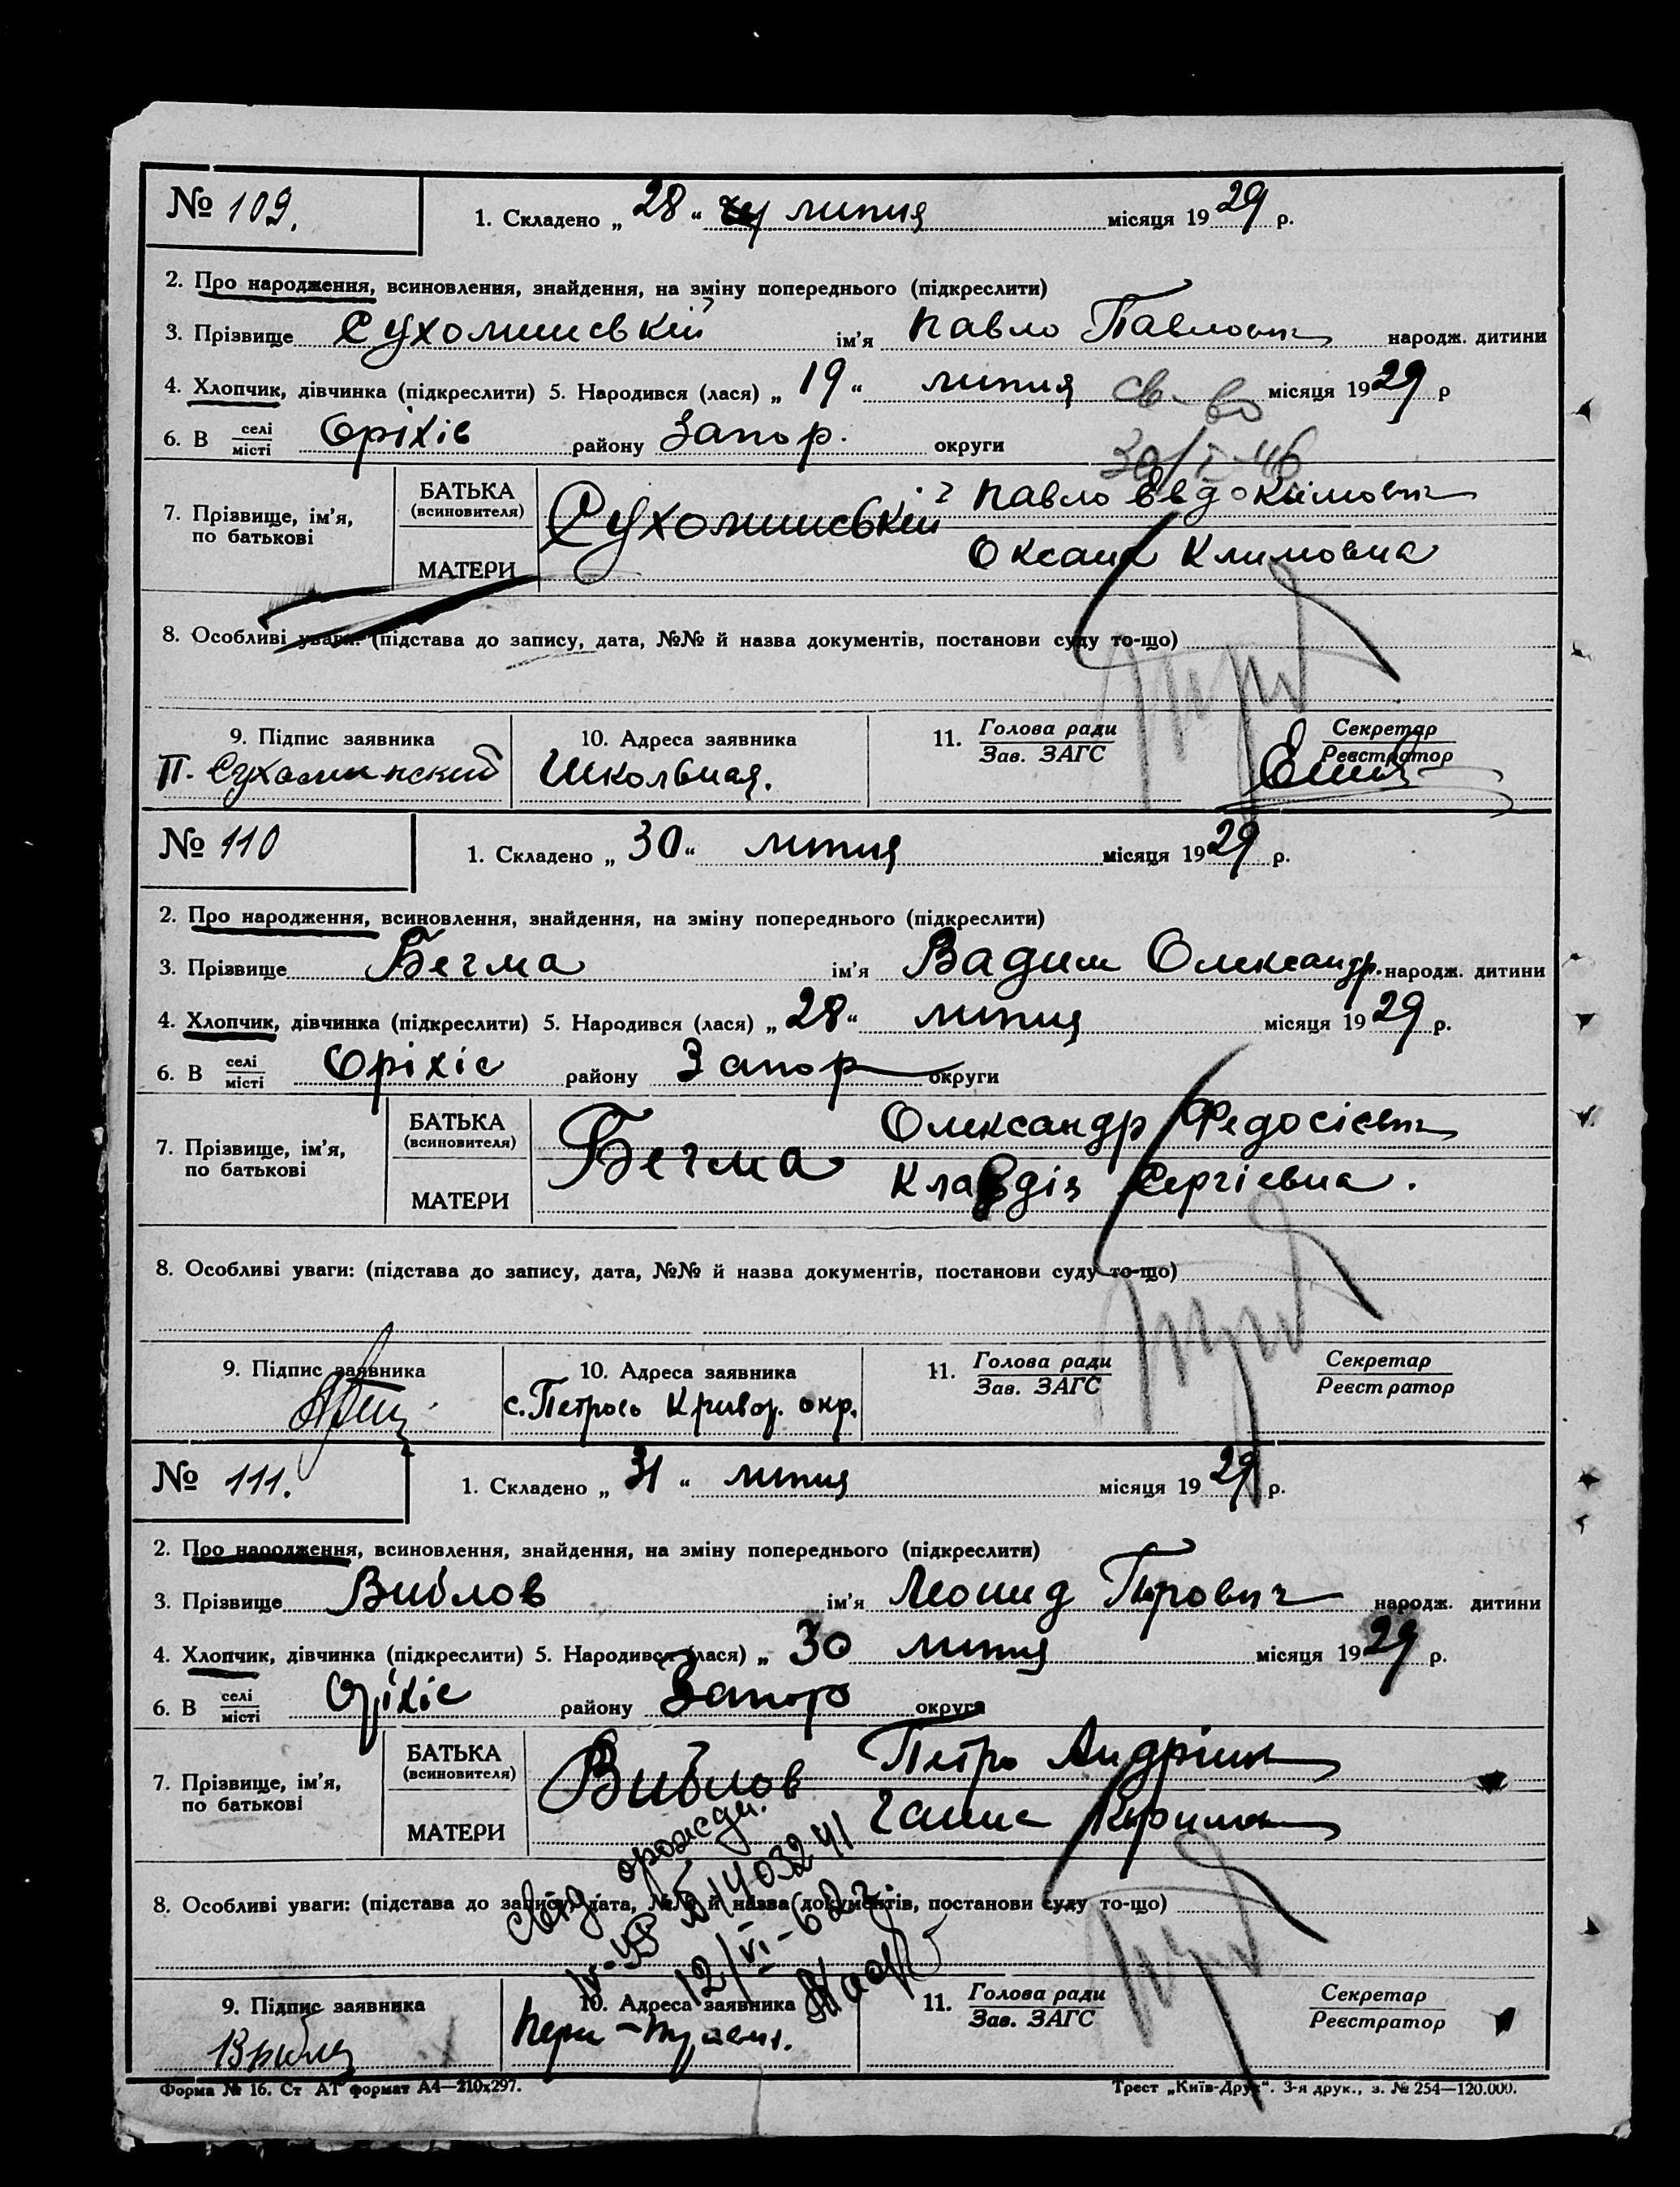 № 109.
1. Складено „ 28 “ липня місяця 1929 р.
2. Про народження, всиновлення, знайдення, на зміну попереднього (підкреслити)
3. Прізвище Сухомлиевькій ім'я Павло Павлович народж. дитини
4. Хлопчик, дівчинка (підкреслити) 5. Народився (лася) „ 19 “ липня місяця 1929 р
св-во
6. В селі/місті Оріхів району Запор. округи
30/I-46
7. Прізвище, ім'я, по батькові
БАТЬКА (всиновителя) Павло Евдокимович
МАТЕРИ Оксана Климовна
8. Особливі уваги: (підстава до запису, дата, №№ й назва документів, постанови суду то-що)
9. Підпис заявника 10. Адреса заявника 11. Голова ради Секретар
Зав. ЗАГС Реєстратор
П. Сухомлинский Школьная.
№ 110
1. Складено „ 30 “ липня місяця 1929 р.
2. Про народження, всиновлення, знайдення, на зміну попереднього (підкреслити)
3. Прізвище Бегма ім'я Вадим Олександр. народж. дитини
4. Хлопчик, дівчинка (підкреслити) 5. Народився (лася) „ 28 “ липня місяця 1929 р.
6. В селі/місті Оріхів району Запор округи
7. Прізвище, ім'я, по батькові
БАТЬКА (всиновителя) Бегма Олександр Федосієвич
МАТЕРИ Клавдія Сергієвна.
8. Особливі уваги: (підстава до запису, дата, №№ й назва документів, постанови суду то-що)
9. Підпис заявника 10. Адреса заявника 11. Голова ради Секретар
Зав. ЗАГС Реєстратор
с. Петрово Кривор. окр.
№ 111.
1. Складено „ 31 “ липня місяця 1929 р.
2. Про народження, всиновлення, знайдення, на зміну попереднього (підкреслити)
3. Прізвище ім'я Леонид Петрович народж. дитини
4. Хлопчик, дівчинка (підкреслити) 5. Народився (лася) „ 30 липня місяця 1929 р.
6. В селі/місті Оріхів району Запор округи
7. Прізвище, ім'я, по батькові
БАТЬКА (всиновителя) Петро Андрійов
МАТЕРИ Ганна
свид. о рожден.
8. Особливі уваги: (підстава до запису, дата, №№ й назва документів, постанови суду то-що)
№ 403241
12/VI-62 г
9. Підпис заявника 10. Адреса заявника 11. Голова ради Секретар
Зав. ЗАГС Реєстратор
Форма № 16. Ст АТ формат А4—210х297. Трест „Київ-Друк“. 3-я друк., з. № 254—120.000.